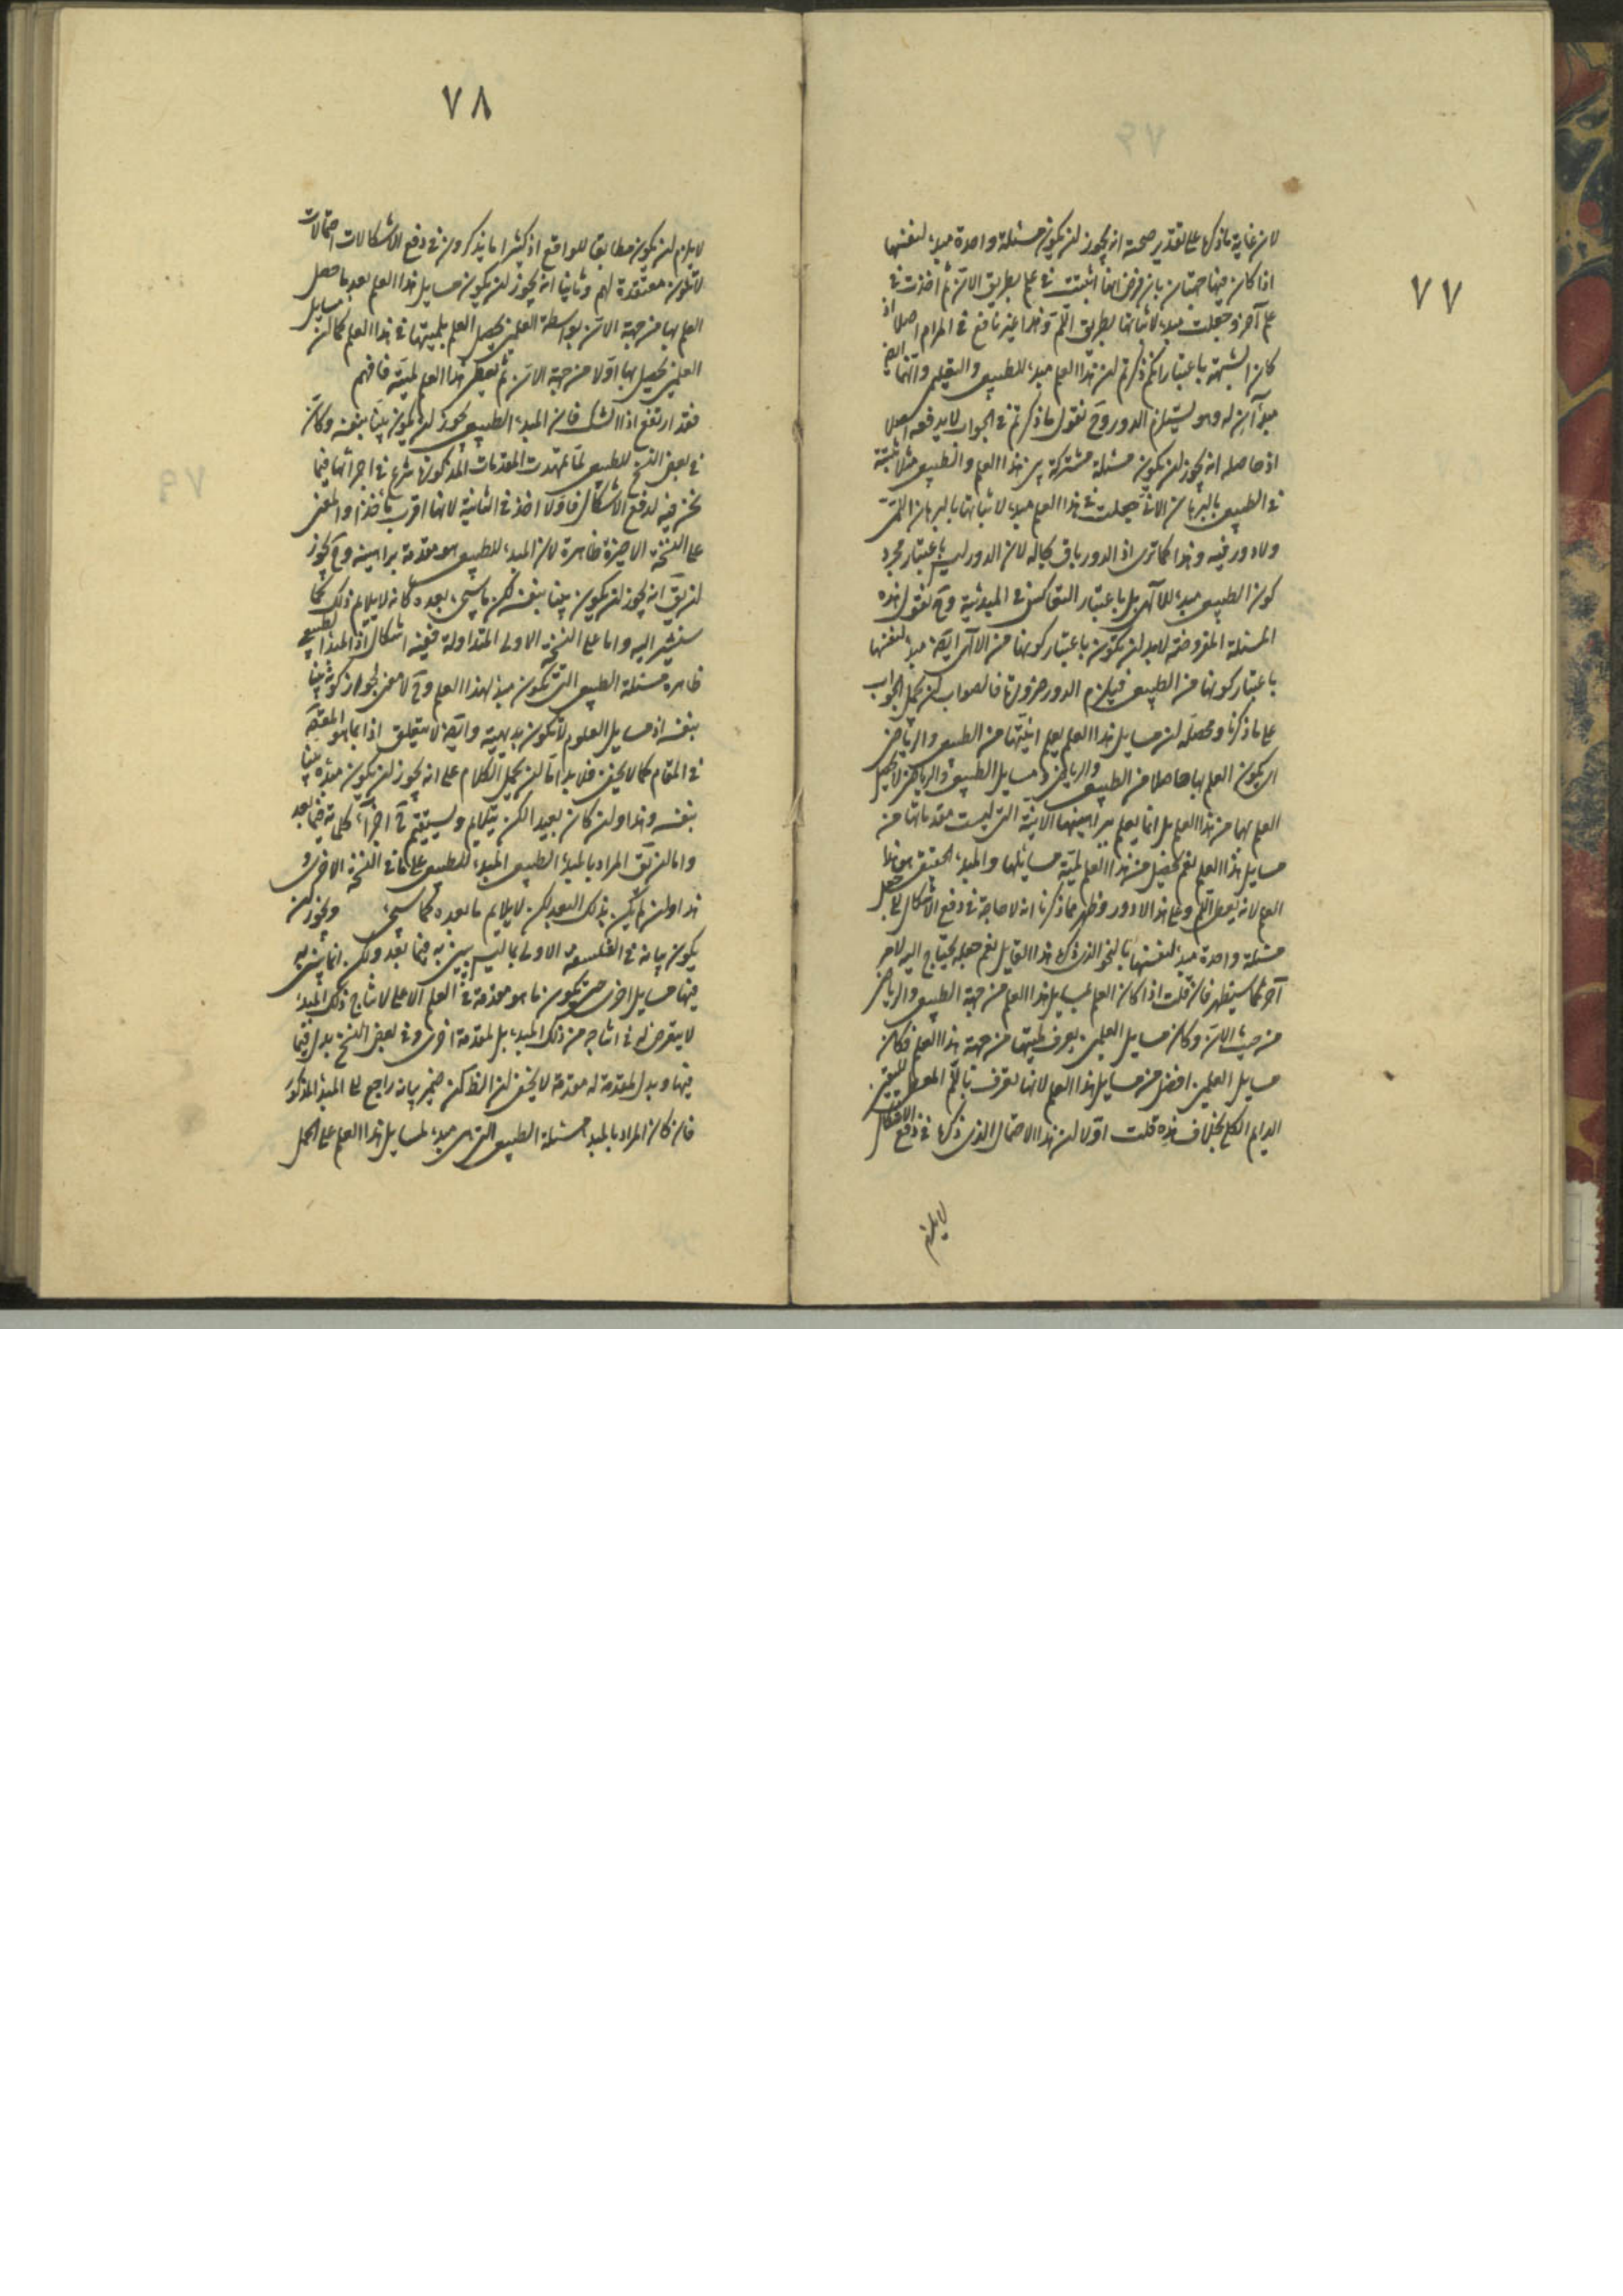 ٧٧
لان غاية ما ذكره على تقدير صحته انه يجوز ان يكون مسئلة واحدة مبدء لنفسها
اذا كان فيها جهتان بان فرض انها اثبتت في علم بطريق الان ثم اخذت في
علم آخر وجعلت مبدء لاثباتها بطريق اللم وهذا غير نافع في المرام اصلا اذ
كان الشبهة باعتبار انكم ذكرتم ان هذا العلم مبدء للطبيعي والتعليمي وانهما ايضا
مبدآن له وهو يستلزم الدور وح نقول ما ذكرتم في الجواب لا يدفعه اصلا
اذ حاصله انه يجوز ان يكون مسئلة مشتركة بين هذا العلم والطبيعي مثلا مثبتة
في الطبيعي بالبرهان الاني جعلت في هذا العلم مبدء لاثباتها بالبرهان اللمي
ولا دور فيه وهذا كما ترى اذ الدور باق بحاله لان الدور ليس باعتبار مجرد
كون الطبيعي مبدء للآلهي بل باعتبار التعاكس في المبدئية وح نقول هذه
المسئلة المفروضة لابد ان تكون باعتبار كونها من الالهي ايضا مبدء لنفسها
باعتبار كونها من الطبيعي فيلزم الدور ضرورة فالصواب ان يحمل الجواب
على ما ذكرنا ومحصله ان مسايل هذا العلم يعلم انيتها من الطبيعي والرياضي
اي يكون العلم بها حاصلا من الطبيعي والرياضي و مسايل الطبيعي والرياضي لا يحصل
العلم بها من هذا العلم بل انما يعلم ببراهينها الانية التي ليست مقدماتها من
مسايل هذا العلم نعم يحصل من هذا العلم لمية مسايلها والمبدء الحقيقي هو هذا
العلم لانه يعطي اللم وعلى هذا لا دور وظهر مما ذكرنا انه لا حاجة في دفع الاشكال الى جعل
مسئلة واحدة مبدء لنفسها بالنحو الذي ذكره هذا القايل نعم جعله يحتاج اليه لامر
آخر كما سيظهر فان قلت اذا كان العلم بمسايل هذا العلم من جهة الطبيعي والرياضي
من حيث الان وكان مسايل العلمين يعرف لميتها من جهة هذا العلم فكان
مسايل العلمين افضل من مسايل هذا العلم لانها تعرف باللم المعطي لليقين
الدايم الكلي بخلاف هذه قلت اولا ان هذا الاحتمال الذي ذكره في دفع الاشكال
لا يلزم
٧٨
لا يلزم ان يكون مطابقا للواقع اذ كثيرا ما يذكرون في دفع الاشكالات احتمالات
لا تكون معتقدة لهم وثانيا انه يجوز ان يكون مسايل هذا العلم بعد ما حصل
العلم بها من جهة الان بواسطة العلمين يحصل العلم بلميتها في هذا العلم كما ان مسايل
العلمين يحصل بها اولا من جهة الان ثم يعطي هذا العلم لميته فافهم
فقد ارتفع اذا الشك فان المبدء الطبيعي يجوز ان يكون بينا بنفسه وكان
في بعض النسخ للطبيعي لما تمهدت المقدمات المذكورة شرع في اجرائها فيما
نحن فيه لدفع الاشكال فاولا اخذ في الثانية لانها اقرب ماخذا والمعنى
على النسخة الاخيرة ظاهرة لان المبدء للطبيعي هو مقدمة براهينه وح يجوز
ان يق انه يجوز ان يكون بينا بنفسه لكن ما سيجيء بعده كانه لا يلايم ذلك كما
سنشير اليه واما على النسخة الاولى المتداولة ففيه اشكال اذ المبدء الطبيعي
ظاهره مسئلة الطبيعي التي تكون مبدء لهذا العلم وح لا معنى لجواز كونه بينا
بنفسه اذ مسايل العلوم لا تكون بديهية وايضا لا يتعلق اذا بما هو المقص
في المقام كما لا يخفى فلابد اما ان يحمل الكلام على انه يجوز ان يكون مبدؤه بينا
بنفسه وهذا وان كان بعيدا لكن يتلايم ويستقيم ح اجزاء كلامه فيما بعد
واما ان يق المراد بالمبدء الطبيعي المبدء للطبيعي على ما في النسخة الاخرى و
هذا وان لم يكن بذلك البعد لكن لا يلايم ما بعده كما سيجيء ويجوز ان
يكون بيانه في الفلسفة الاولى بما ليس يبين به فيما بعد ولكن انما يبين به
فيها مسايل اخرى حتى يكون ما هو مقدمة في العلم الاعلى لانتاج ذلك المبدء
لا يتعرض له في انتاجه من ذلك المبدء بل لمقدمة اخرى وفي بعض النسخ بدل فيما
فيها وبدل لمقدمة له مقدمة لا يخفى ان الظ كون ضمير بيانه راجع الى المبدء المذكور
فان كان المراد بالمبدء مسئلة الطبيعي التي هي مبدء لمسايل هذا العلم على الحمل